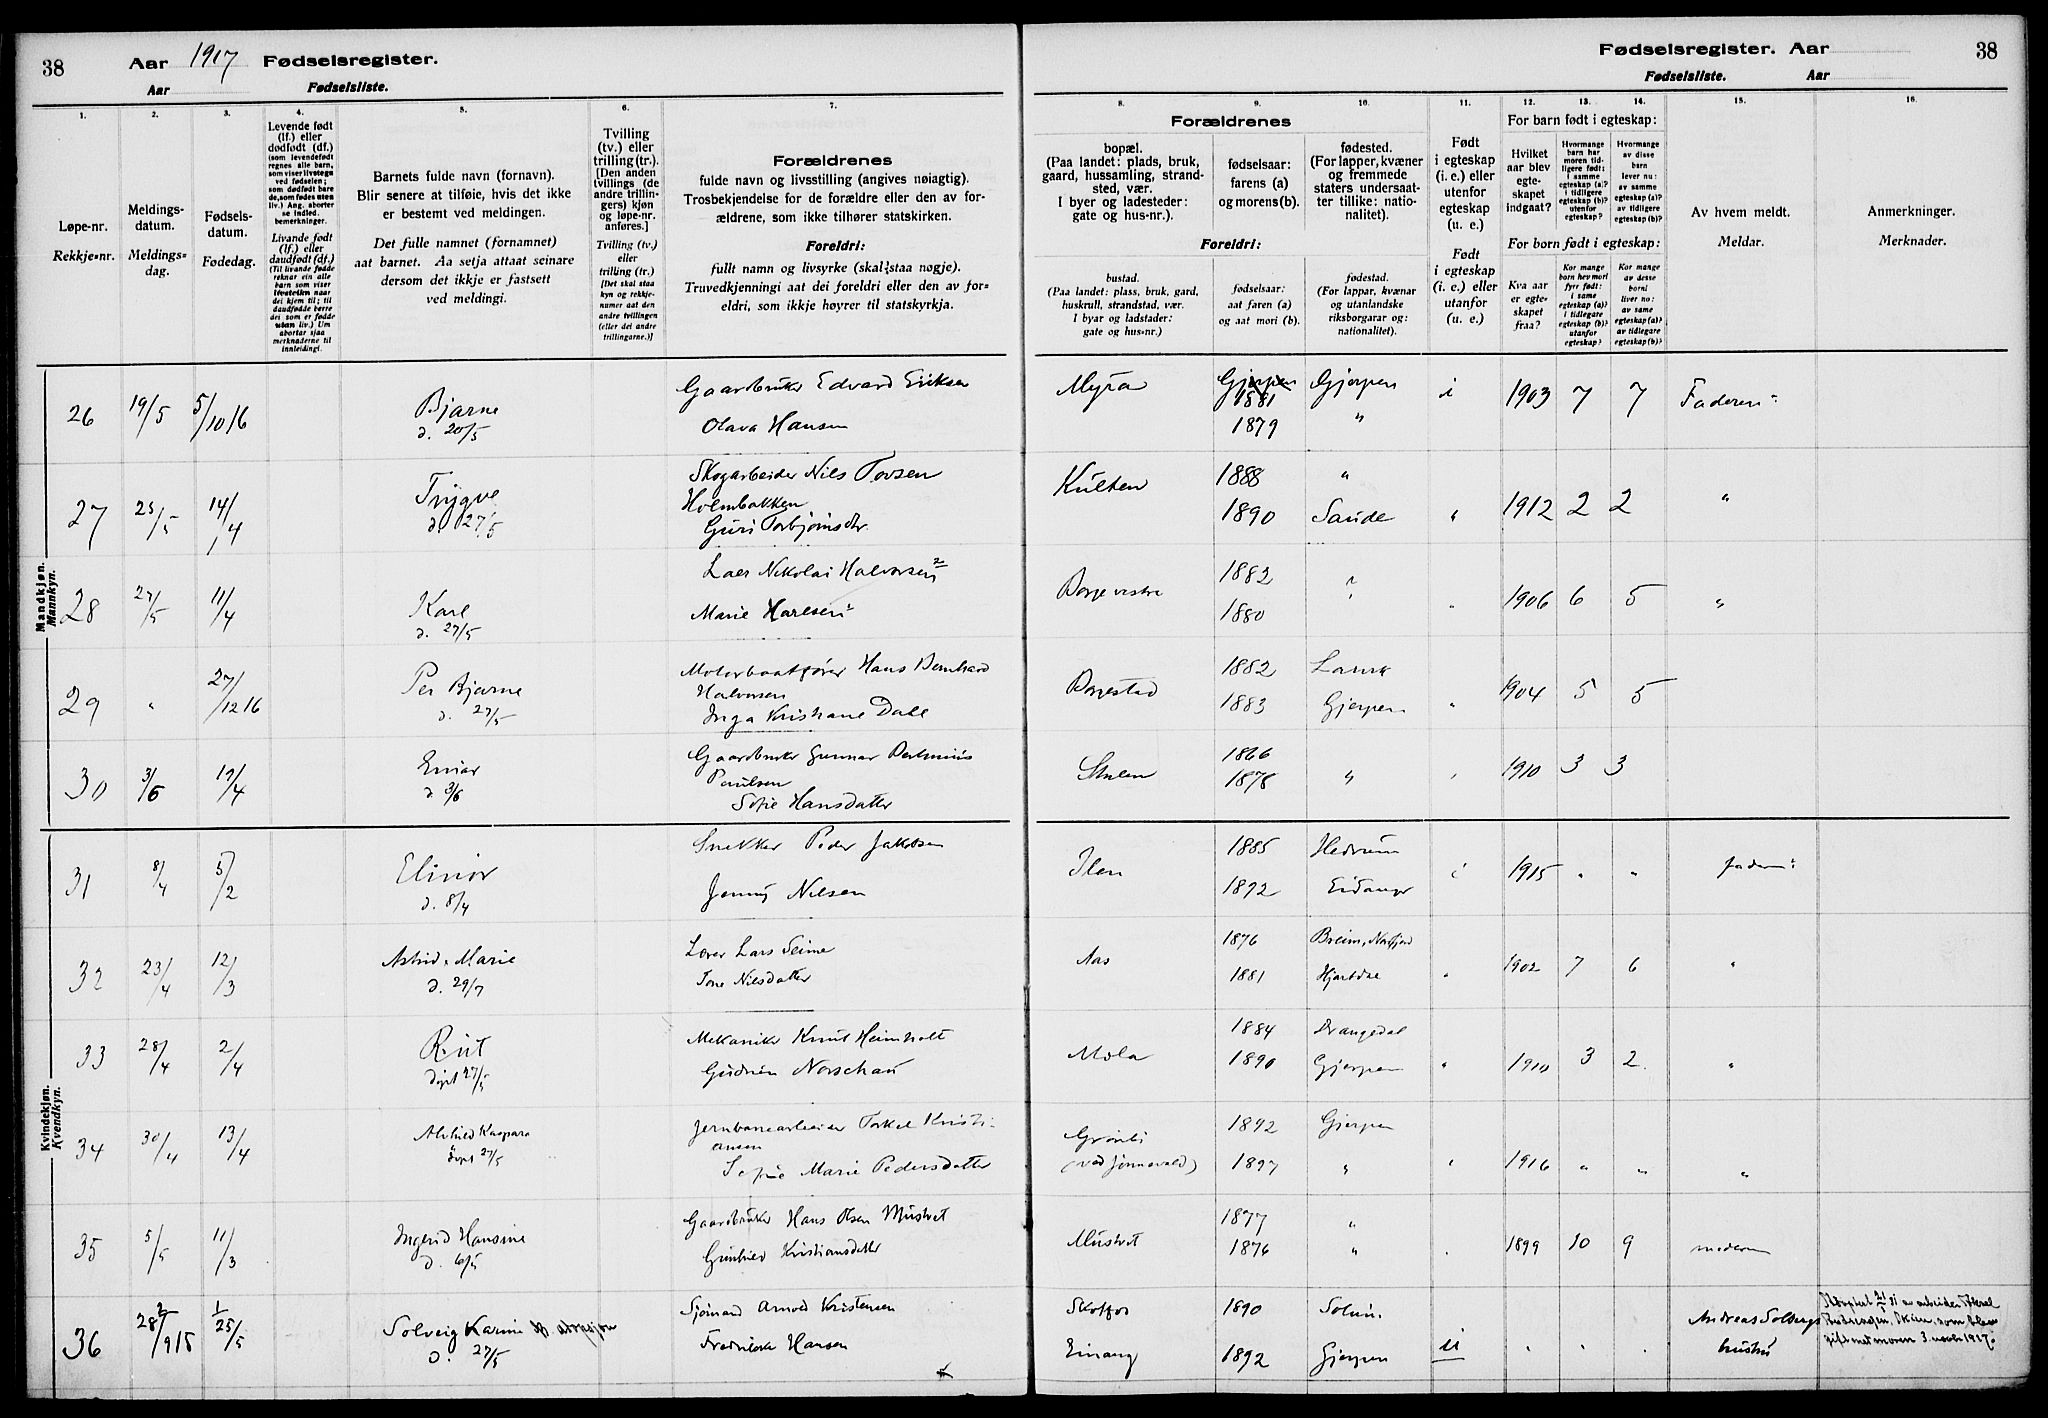 38 Aar 1917 Fødselsregister.
Aar Fødselsliste.
Fødselsregister. Aar 38
Fødselsliste. Aar
1. 2. 3. 4. 5. 6. 7.
Løpe-nr.
Rekkje-nr.
Meldings-
datum.
Meldings-
dag.
Fødsels-
datum.
Fødedag.
Levende født
(lf.) eller
dødfødt (df.)
(som levendefødt
regnes alle barn,
som viser livstegn
ved fødselen;
som dødfødt bare
de, som fødes uten
liv.) Ang. aborter
se indled.
bemerkninger.
Livande født
(lf.) eller
daudfødt (df.)
(Til livande fødde
reknar ein alle
barn som viser
livsteikn naar
dei kjem til; til
daudfødde berre
dei som er fødde
utan liv.) Um
abortar sjaa
merknaderne til
innleidingi.
Barnets fulde navn (fornavn).
Blir senere at tilføie, hvis det ikke
er bestemt ved meldingen.
Det fulle namnet (fornamnet)
aat barnet. Aa setja attaat seinare
dersom det ikkje er fastsett
ved meldingi.
Tvilling
(tv.) eller
trilling (tr.).
[Den anden
tvillings (de
andre trillin-
gers) kjøn
og løpe-nr.
anføres.]
Tvilling (tv.)
eller
trilling (tr.)
[Det skal staa
kyn og rekkje-
numer aat den
andre tvillingen
(eller dei andre
trillingarne.)]
Forældrenes
fulde navn og livsstilling (angives nøiagtig).
Trosbekjendelse for de forældre eller den av for-
ældrene, som ikke tilhører statskirken.
Foreldri:
fullt namn og livsyrke (skal staa nøgje).
Truvedkjenningi aat dei foreldri eller den av for-
eldri, som ikkje høyrer til statskyrkja.
8. 9. 10. 11. 12. 13. 14. 15. 16.
Forældrenes
bopæl.
(Paa landet: plads, bruk,
gaard, hussamling, strand-
sted, vær.
I byer og ladesteder:
gate og hus-nr.).
fødselsaar:
farens (a)
og morens (b).
fødested.
(For lapper, kvæner
og fremmede
staters undersaat-
ter tillike: natio-
nalitet).
Foreldri:
bustad.
(Paa landet: plass, bruk, gard,
huskrull, strandstad, vær.
I byar og ladstader:
gate og hus-nr.)
fødselsaar:
aat faren (a)
og aat mori (b).
fødestad.
(For lappar, kvænar
og utanlandske
riksborgarar og:
nationalitet).
Født
i egteskap
(i. e.) eller
utenfor
egteskap
(u. e.)
Født
i egteskap
(i. e.) eller
utanfor
(u. e.)
For barn født i egteskap:
Hvilket
aar blev
egte-
skapet
indgaat?
Hvormange
barn har
moren tid-
ligere født:
i samme
egteskap (a)?
i tidligere
egteskap (b)?
utenfor
egteskap?
Hvormange
av disse
barn
lever nu:
av samme
egteskap (a)?
av tidligere
egteskap (b)?
For born født i egteskap:
Kva aar
er egte-
skapet
fraa?
Kor mange
barn hev mori
fyrr født:
i same
egteskap (a)?
i tidlegare
egteskap (b)?
utanfor
egteskap?
Kor mange
av desse
borni
liver no:
av same
egteskap (a)?
av tidlegare
egteskap (b)?
Av hvem meldt.
Meldar.
Anmerkninger.
Merknader.
Mandkjøn.
Mannkyn.
26 19/5 5/10 16 Bjarne Gaardbruker Edvard Eriksen Myra Gjerpen 1881 Gjerpen i 1903 7 7 Faderen
d. 20/5 Olava Hansen 1879 "
27 25/5 14/4 Trygve Skogarbeider Nils Tovsen Kulten 1888 "
d. 27/5 Holmbakken 1890 Saude " 1912 2 2 "
Guri Torbjørnsdr.
28 27/5 11/4 Karl Lars Nikolai Halvorsen Borge vestre 1882 "
d. 27/5 Marie Karlsen 1880 " " 1906 6 5 "
29 " 27/12 16 Per Bjarne Motorbaatfører Hans Bernhard Borgestad 1882
d. 27/5 Halvorsen 1883 Gjerpen " 1904 5 5
Inga Kristiane Dale
30 3/6 19/4 Einar Gaardbruker Gunnar Paulsen 1866
d. 3/6 Sofie Hansdatter 1878 " 1910 3 3
Kvindekjøn.
Kvendkyn.
31 8/4 5/2 Elinor Snekker Peder Jakobsen 1885 Hedrum
d. 8/4 Jenny Nilsen 1892 Eidanger i 1915 " " faderen
32 23/4 12/3 Astrid Marie Lærer Lars Seime Aas 1876 Breim, Nordfjord
d. 29/7 Tone Nilsdatter 1881 Hjartdal " 1902 7 6 "
33 28/4 2/4 Rut Mekaniker Knut Heimholt Mæla 1884 Drangedal
døpt 27/5 Gudrun Norschau 1890 Gjerpen " 1910 3 2 "
34 30/4 13/4 Alvhild Kaspara Jernbanearbeider Torkel Kristi- 1892 Gjerpen
døpt 27/5 ansen
Sofie Marie Pedersdatter (ved Jønnevald) 1897 " 1916 " " "
35 5/5 11/3 Ingerid Hansine Gaardbruker Hans Olsen Mustvet Mustvet 1877 "
d. 6/5 Gunhild Kristiansdatter 1876 " 1899 10 9 moderen
36 28/2 1915 1/25/5 Solveig Karine Sjømand Arnold Kristensen Skotfos 1890 Solum Andreas Solbergs
d. 27/5 Fredrikke Hansen Einang 1892 Gjerpen u " " " hustru
gift met moren 3. novbr 1917.